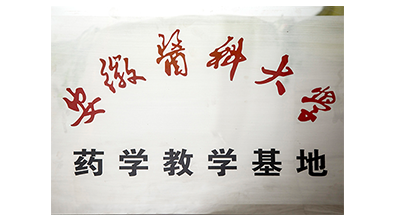 安徽醫科大學
药学教学基地